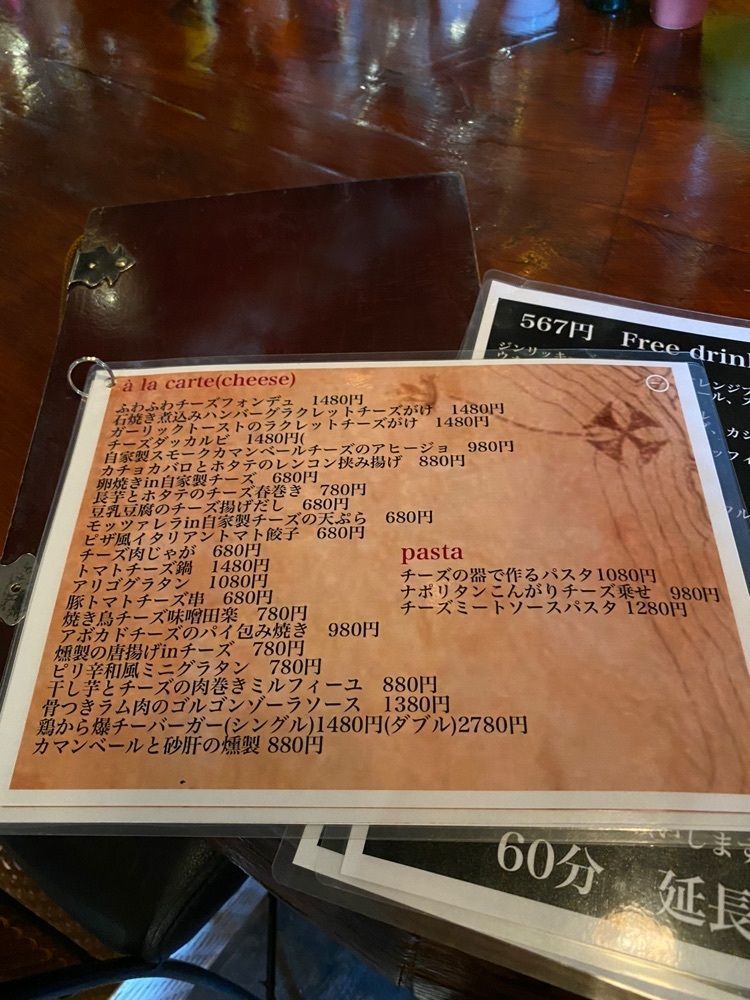 567円 Free drin
ジンリッキ
à la carte(cheese)
ふわふわチーズフォンデュ 1480円
石焼き煮込みハンバーグラクレットチーズがけ 1480円
ガーリックトーストのラクレットチーズがけ 1480円
チーズダッカルビ 1480円(
自家製スモークカマンベールチーズのアヒージョ 980円
カチョカバロとホタテのレンコン挟み揚げ 880円
卵焼きin自家製チーズ 680円
長芋とホタテのチーズ春巻き 780円
豆乳豆腐のチーズ揚げだし 680円
モッツァレラin自家製チーズの天ぷら 680円
ピザ風イタリアントマト餃子 680円
チーズ肉じゃが 680円
トマトチーズ鍋 1480円
アリゴグラタン 1080円
豚トマトチーズ串 680円
焼き鳥チーズ味噌田楽 780円
アボカドチーズのパイ包み焼き 980円
燻製の唐揚げinチーズ 780円
ピリ辛和風ミニグラタン 780円
干し芋とチーズの肉巻きミルフィーユ 880円
骨つきラム肉のゴルゴンゾーラソース 1380円
鶏から爆チーバーガー(シングル)1480円(ダブル)2780円
カマンベールと砂肝の燻製 880円
pasta
チーズの器で作るパスタ1080円
ナポリタンこんがりチーズ乗せ 980円
チーズミートソースパスタ 1280円
します
60分 延長